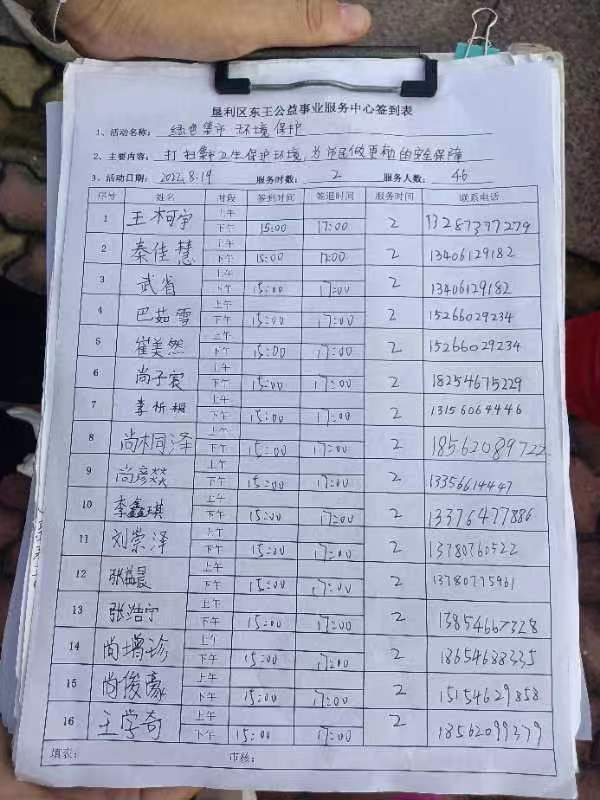 垦利区东王公益事业服务中心签到表
1、活动名称: 绿色集市 环境保护
2、主要内容: 打扫集市卫生保护环境,为市民做更好的安全保障
3、活动日期: 2022.8.19 服务时数: 2 服务人数: 46
序号 姓名 时段 签到时间 签退时间 服务时间 联系电话
1 王柯宇 上午 下午 15:00 17:00 2 13287377279
2 秦佳慧 上午 下午 15:00 17:00 2 13406129182
3 武省 上午 下午 15:00 17:00 2 13406129182
4 巴茹雪 上午 下午 15:00 17:00 2 15266029234
5 崔美然 上午 下午 15:00 17:00 2 15266029234
6 尚子宸 上午 下午 15:00 17:00 2 18254675229
7 李析桐 上午 下午 15:00 17:00 2 13156064446
8 尚桐泽 上午 下午 15:00 17:00 2 18562089722
9 尚彦焱 上午 下午 15:00 17:00 2 13356614447
10 李鑫琪 上午 下午 15:00 17:00 2 13376477886
11 刘崇泽 上午 下午 15:00 17:00 2 13780760522
12 张益晨 上午 下午 15:00 17:00 2 13780775961
13 张浩宁 上午 下午 15:00 17:00 2 13854667328
14 尚增珍 上午 下午 15:00 17:00 2 18654688335
15 尚俊豪 上午 下午 15:00 17:00 2 15154629858
16 王学奇 上午 下午 15:00 17:00 2 18562099379
填表: 审核: